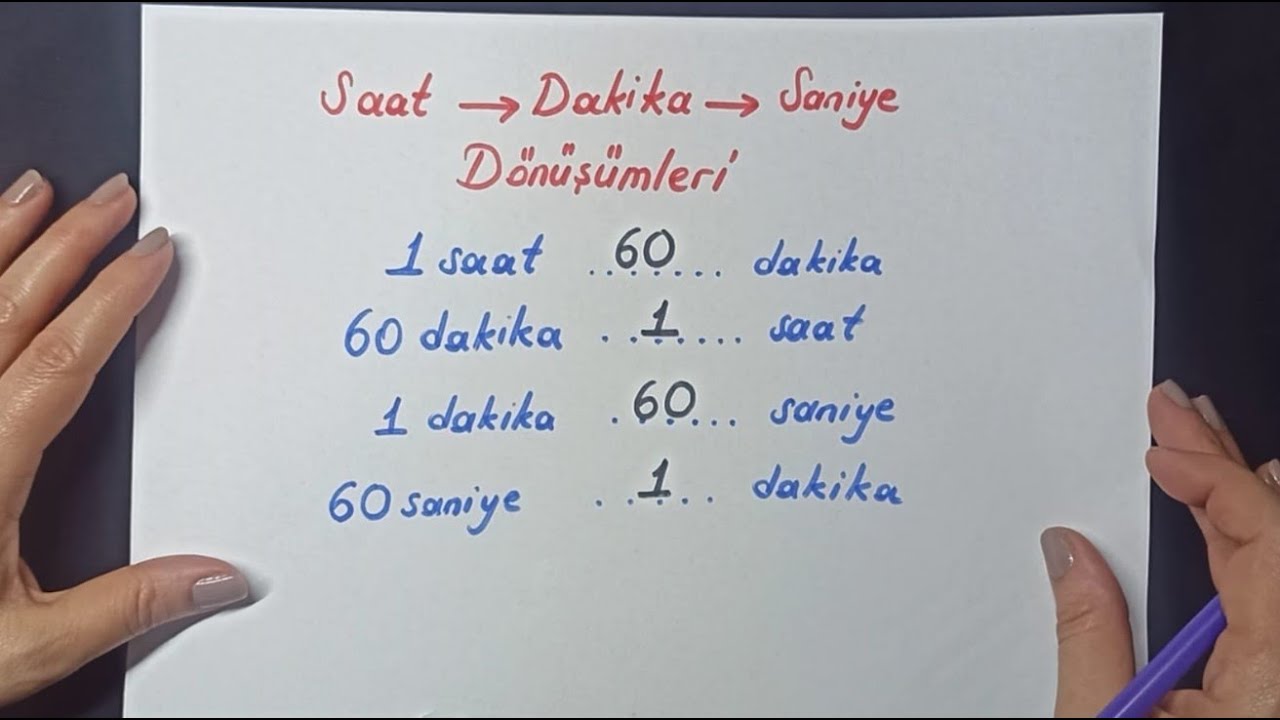 Saat → Dakika → Saniye
Dönüşümleri
1 saat ..60... dakika
60 dakika ...1.... saat
1 dakika .60... saniye
60 saniye ..1.. dakika